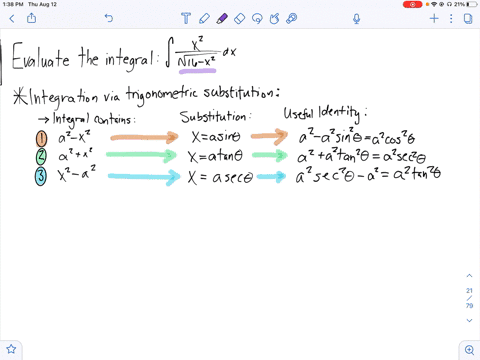 1:38 PM Thu Aug 12
21%
Evaluate the integral: ∫ x²/√(16-x²) dx
*Integration via trigonometric substitution:
→ Integral contains: Substitution: Useful Identity:
1 a²-x² x=asinθ a²-a²sin²θ=a²cos²θ
2 a²+x² x=atanθ a²+a²tan²θ=a²sec²θ
3 x²-a² x=asecθ a²sec²θ-a²=a²tan²θ
21
/
79